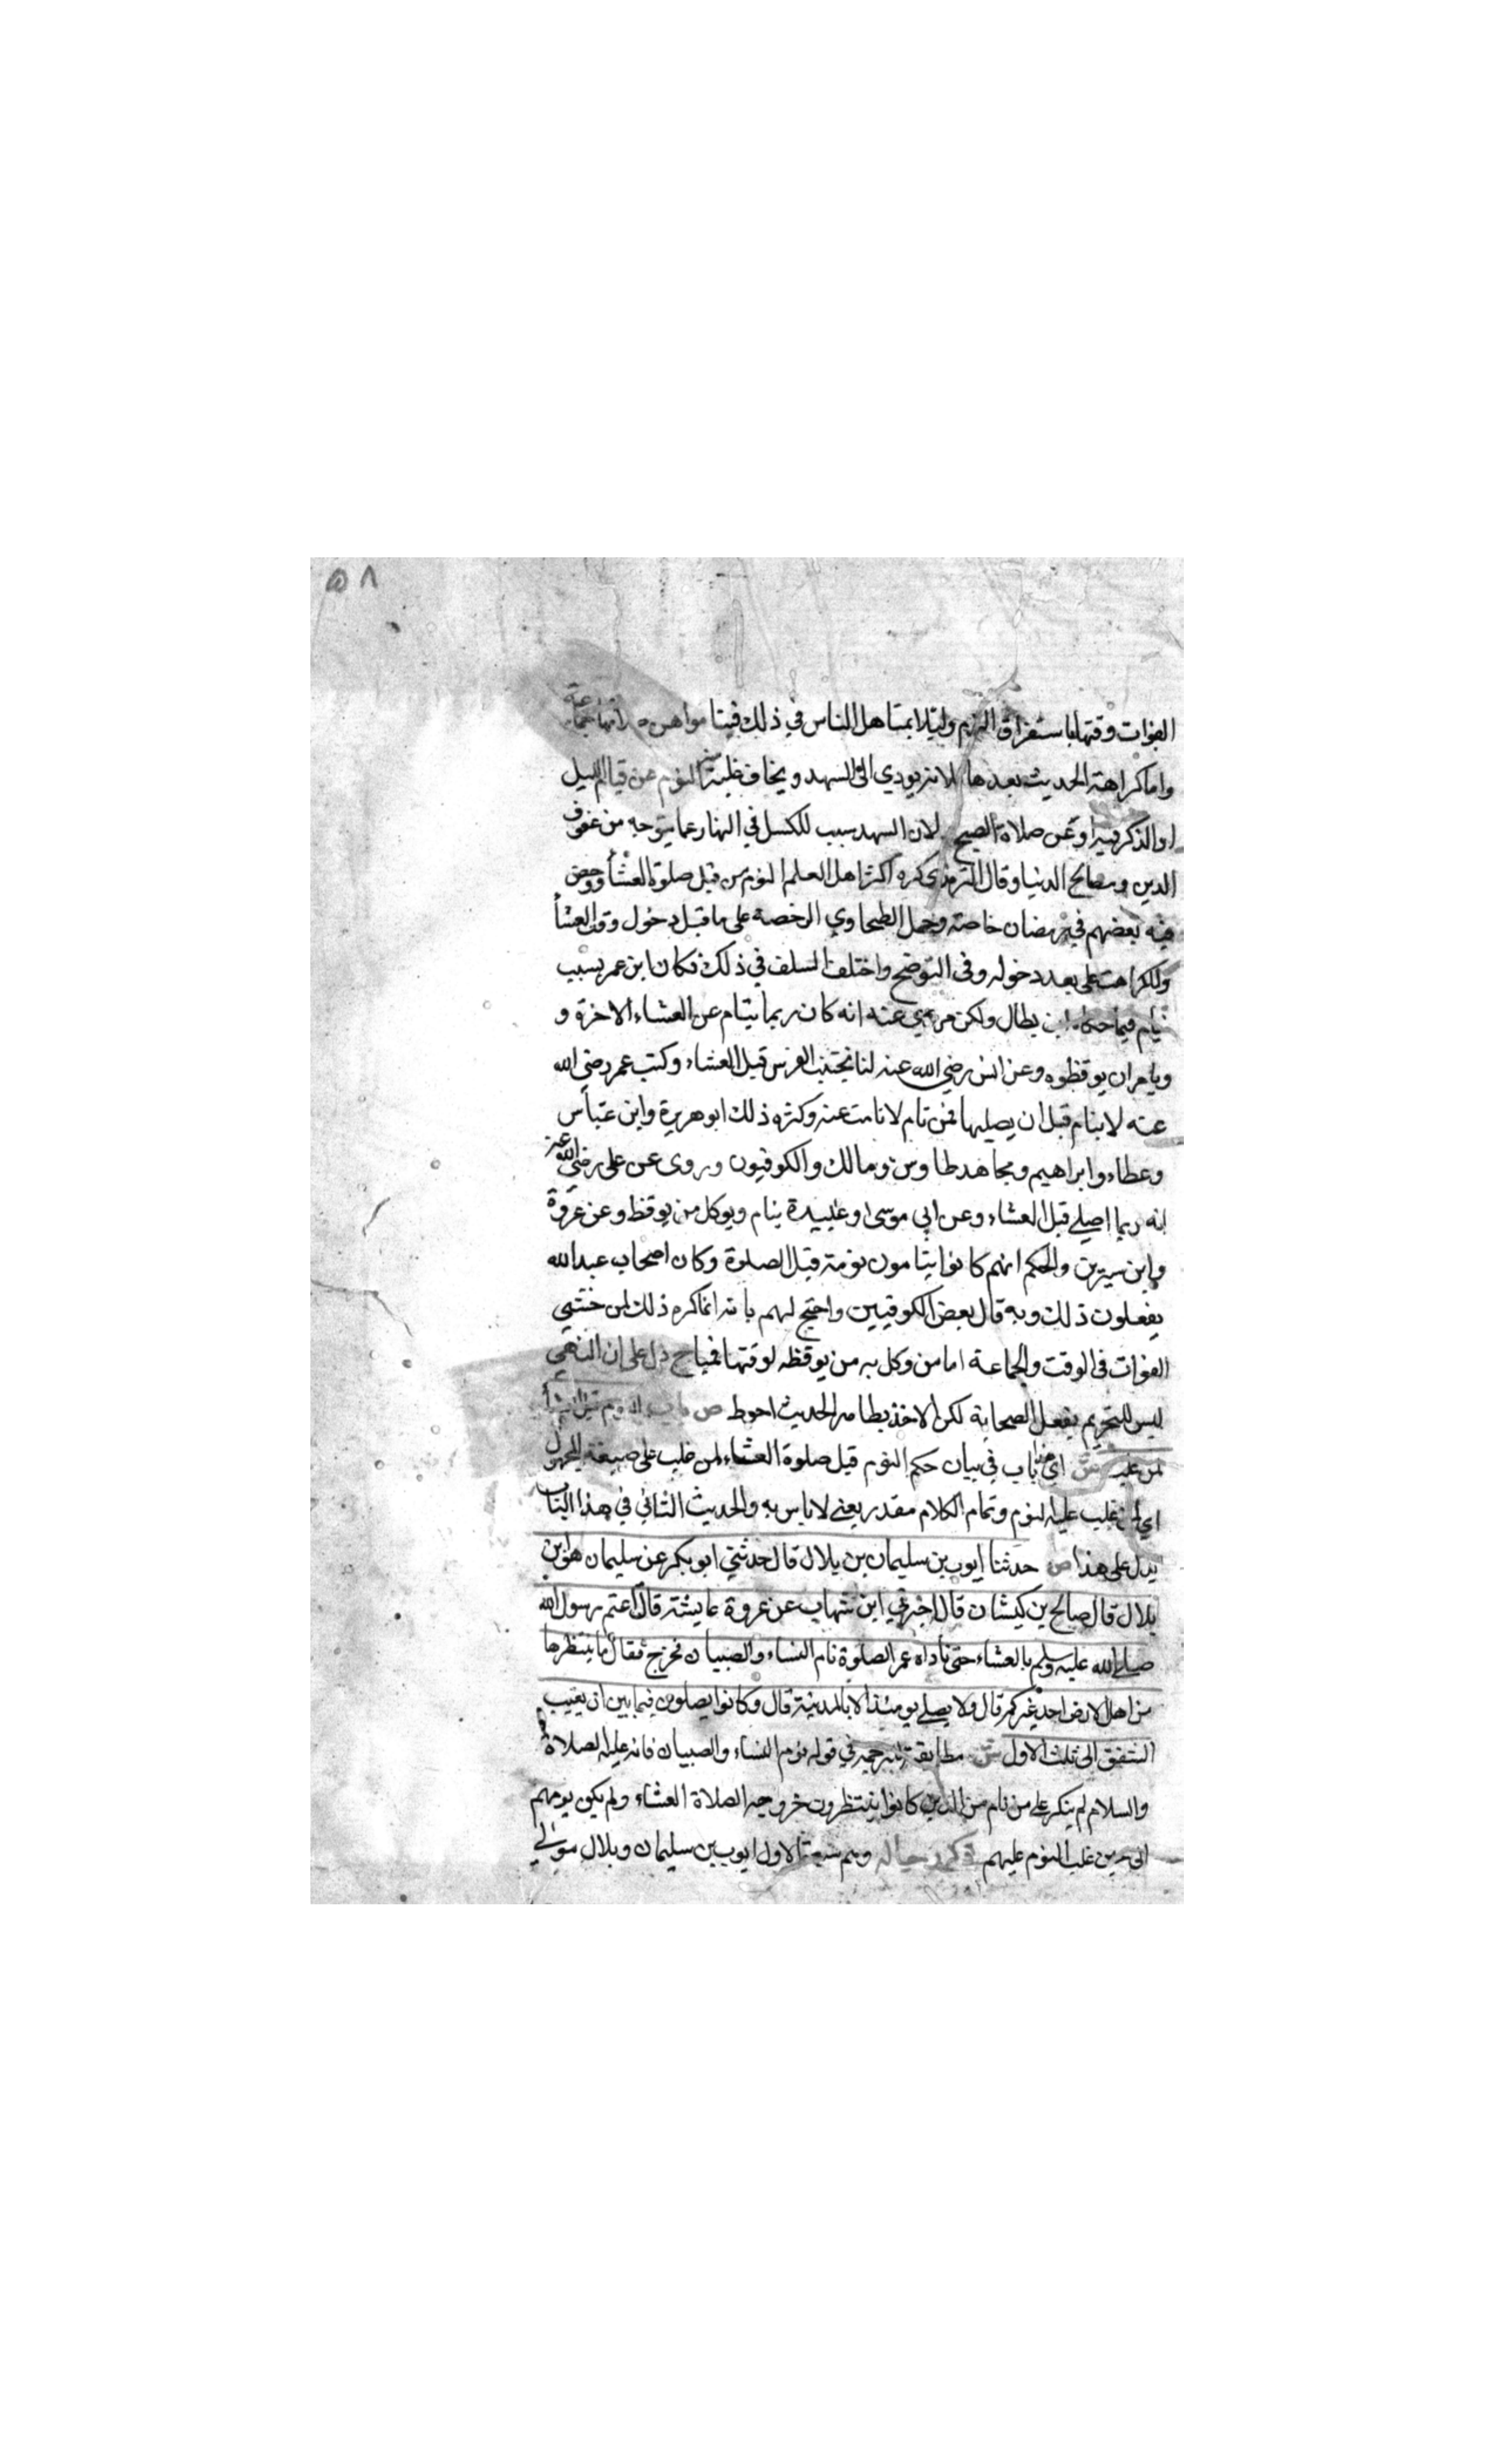 ٥٨
الفوات وقتها باستغراق النوم وليلا يمتاهل الناس في ذلك فيتا مواهن ه لاتها
واما كراهة الحديث بعدها لانه يودي الى السهد ويخاف غلبة النوم عن قيام الليل
او الذكر فيه او عن صلاة الصبح لان السهد سبب للكسل في النهار عما يتوجه من حقوق
الدين ومصالح الدنيا وقال الترمذي كره اكثر اهل العلم النوم من قبل صلوة العشا ورخص
فيه بعضهم في رمضان خاصة وحمل الطحاوي الرخصة على ما قبل دخول وقت العشا
والكراهت على بعد دخوله وفي التوضح واختلف السلف في ذلك فكان ابن عمر يسبب
نيام فيما حكاه ابن بطال ولكن روي عنه انه كان ربما ينام عن العشاء الاخرة و
ويامر ان يوقظوه وعن انس رضي الله عنه لنا نجتنب الفرس قبل العشاء وكتب عمر رضي الله
عنه لا ينام قبل ان يصليها فمن نام لا نامت عنه وكره ذلك ابو هريرة وابن عباس
وعطاء وابراهيم ومجاهد طاوس ومالك والكوفيون وروى عن على رضي الله عنه
انه ربما اصلي قبل العشاء وعن ابي موسى وعبيدة ينام ويوكل من يوقظ وعن عروة
وابن سيرين والحكم انهم كانوا ينامون نومة قبل الصلوة وكان اصحاب عبد الله
يفعلون ذلك وبه قال بعض الكوفيين واحتج لهم بانه انما كره ذلك لمن خشي
الفوات في الوقت والجماعة اما من وكل به من يوقظه لوقتها فمباح دل على ان النهي
ليس للتحريم بفعل الصحابة لكن الاخذ بظاهر الحديث احوط ص باب النوم قبل العشا
لمن غلب ش اي هذا باب في بيان حكم النوم قبل صلوة العشاء لمن غلب على صيغة المجهول
اي لمن غلب عليه النوم وتمام الكلام مقدر يعني لا باس به والحديث الثاني في هذا الباب
يدل على هذا ص حدثنا ايوب بن سليمان بن بلال قال حدثني ابو بكر عن سليمان هو ابن
بلال قال صالح بن كيشان قال اخبرني ابن شهاب عن عروة عايشة قال اعتم رسول الله
صلى الله عليه وسلم بالعشاء حتى ناداه عمر الصلوة نام النساء والصبيان فخرج فقال ما ينتظرها
من اهل الارض احد غيركم قال ولا يصلي يومئذ الا بالمدينة قال وكانوا يصلون فيما بين ان يغيب
الشفق الى ثلث الاول ش مطابقة للترجمة في قوله نوم النساء والصبيان فانه عليه الصلاة
والسلام لم ينكر على من نام من الذين كانوا ينتظرون خروجه الصلاة العشاء ولم يكن يومهم
الى حين غلب النوم عليهم ذكر رجاله وهم سبعة الاول ايوب بن سليمان وبلال مولي